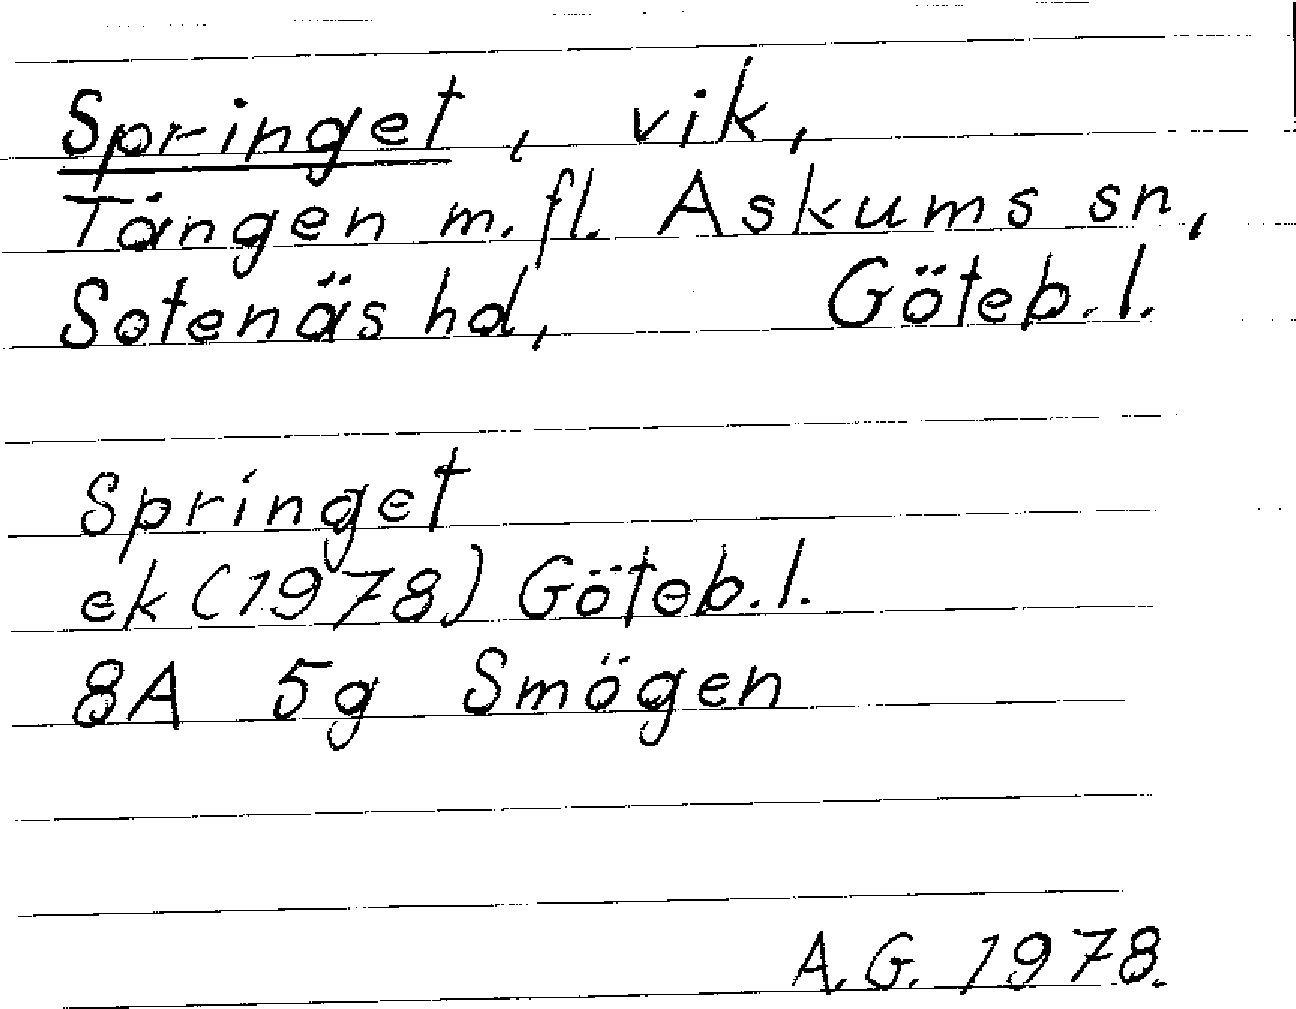 Springet, vik,
Tången m.fl. Askums sn,
Sotenäs hd, Göteb.l.
Springet
ek (1978) Göteb.l.
8A 5g Smögen
A.G. 1978.